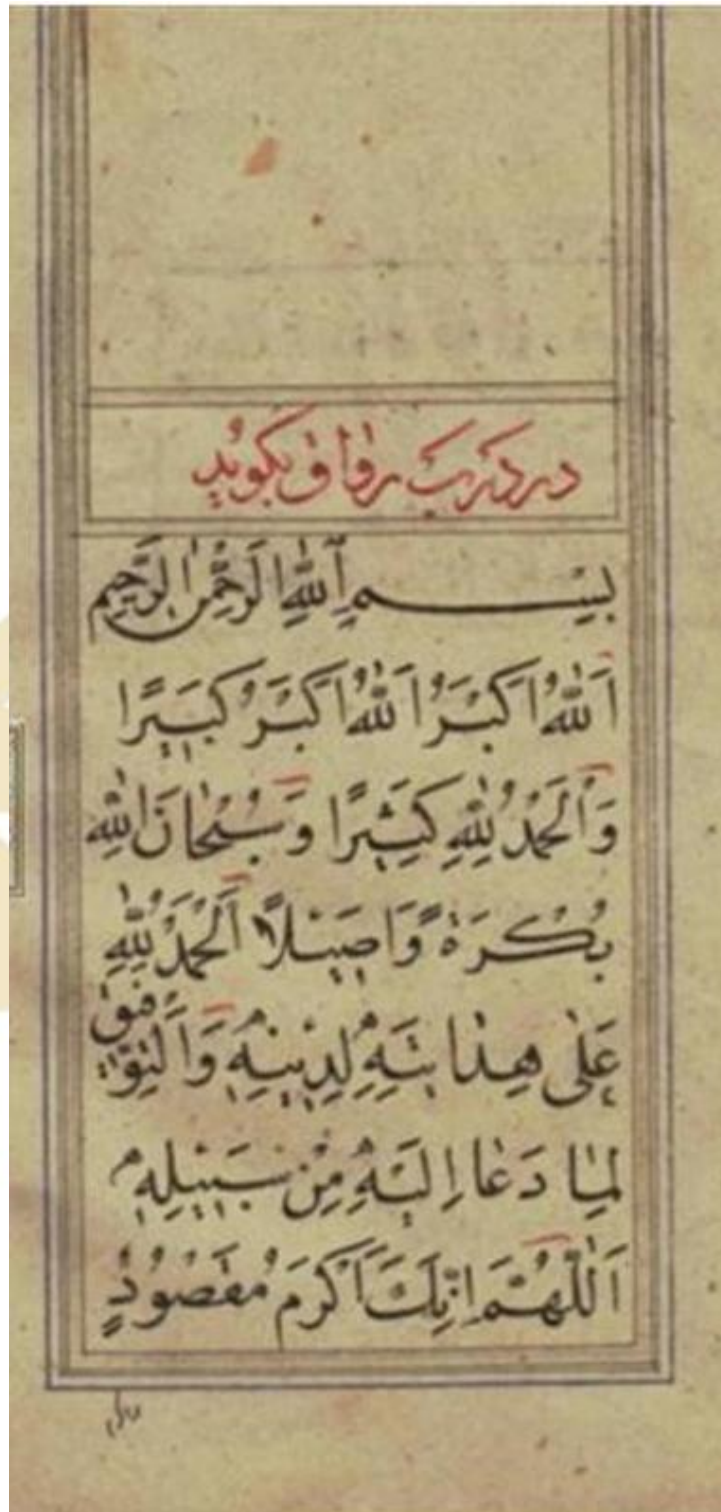 در درب رواق بگوید
بِسْمِ اَللّٰهِ الرَّحْمٰنِ الرَّحِیمِ
اَللّٰهُ اَکْبَرُ اَللّٰهُ اَکْبَرُ کَبِیرًا
وَالْحَمْدُ لِلّٰهِ کَثِیرًا وَسُبْحٰانَ اللّٰهِ
بُکْرَةً وَاَصِیلاً اَلْحَمْدُ لِلّٰهِ
عَلٰی هِدٰایَتِهِ لِدِینِهِ وَالتَّوْفِیقِ
لِمٰا دَعٰا اِلَیْهِ مِنْ سَبِیلِهِ
اَللّٰهُمَّ اِنَّکَ اَکْرَمُ مَقْصُودٍ